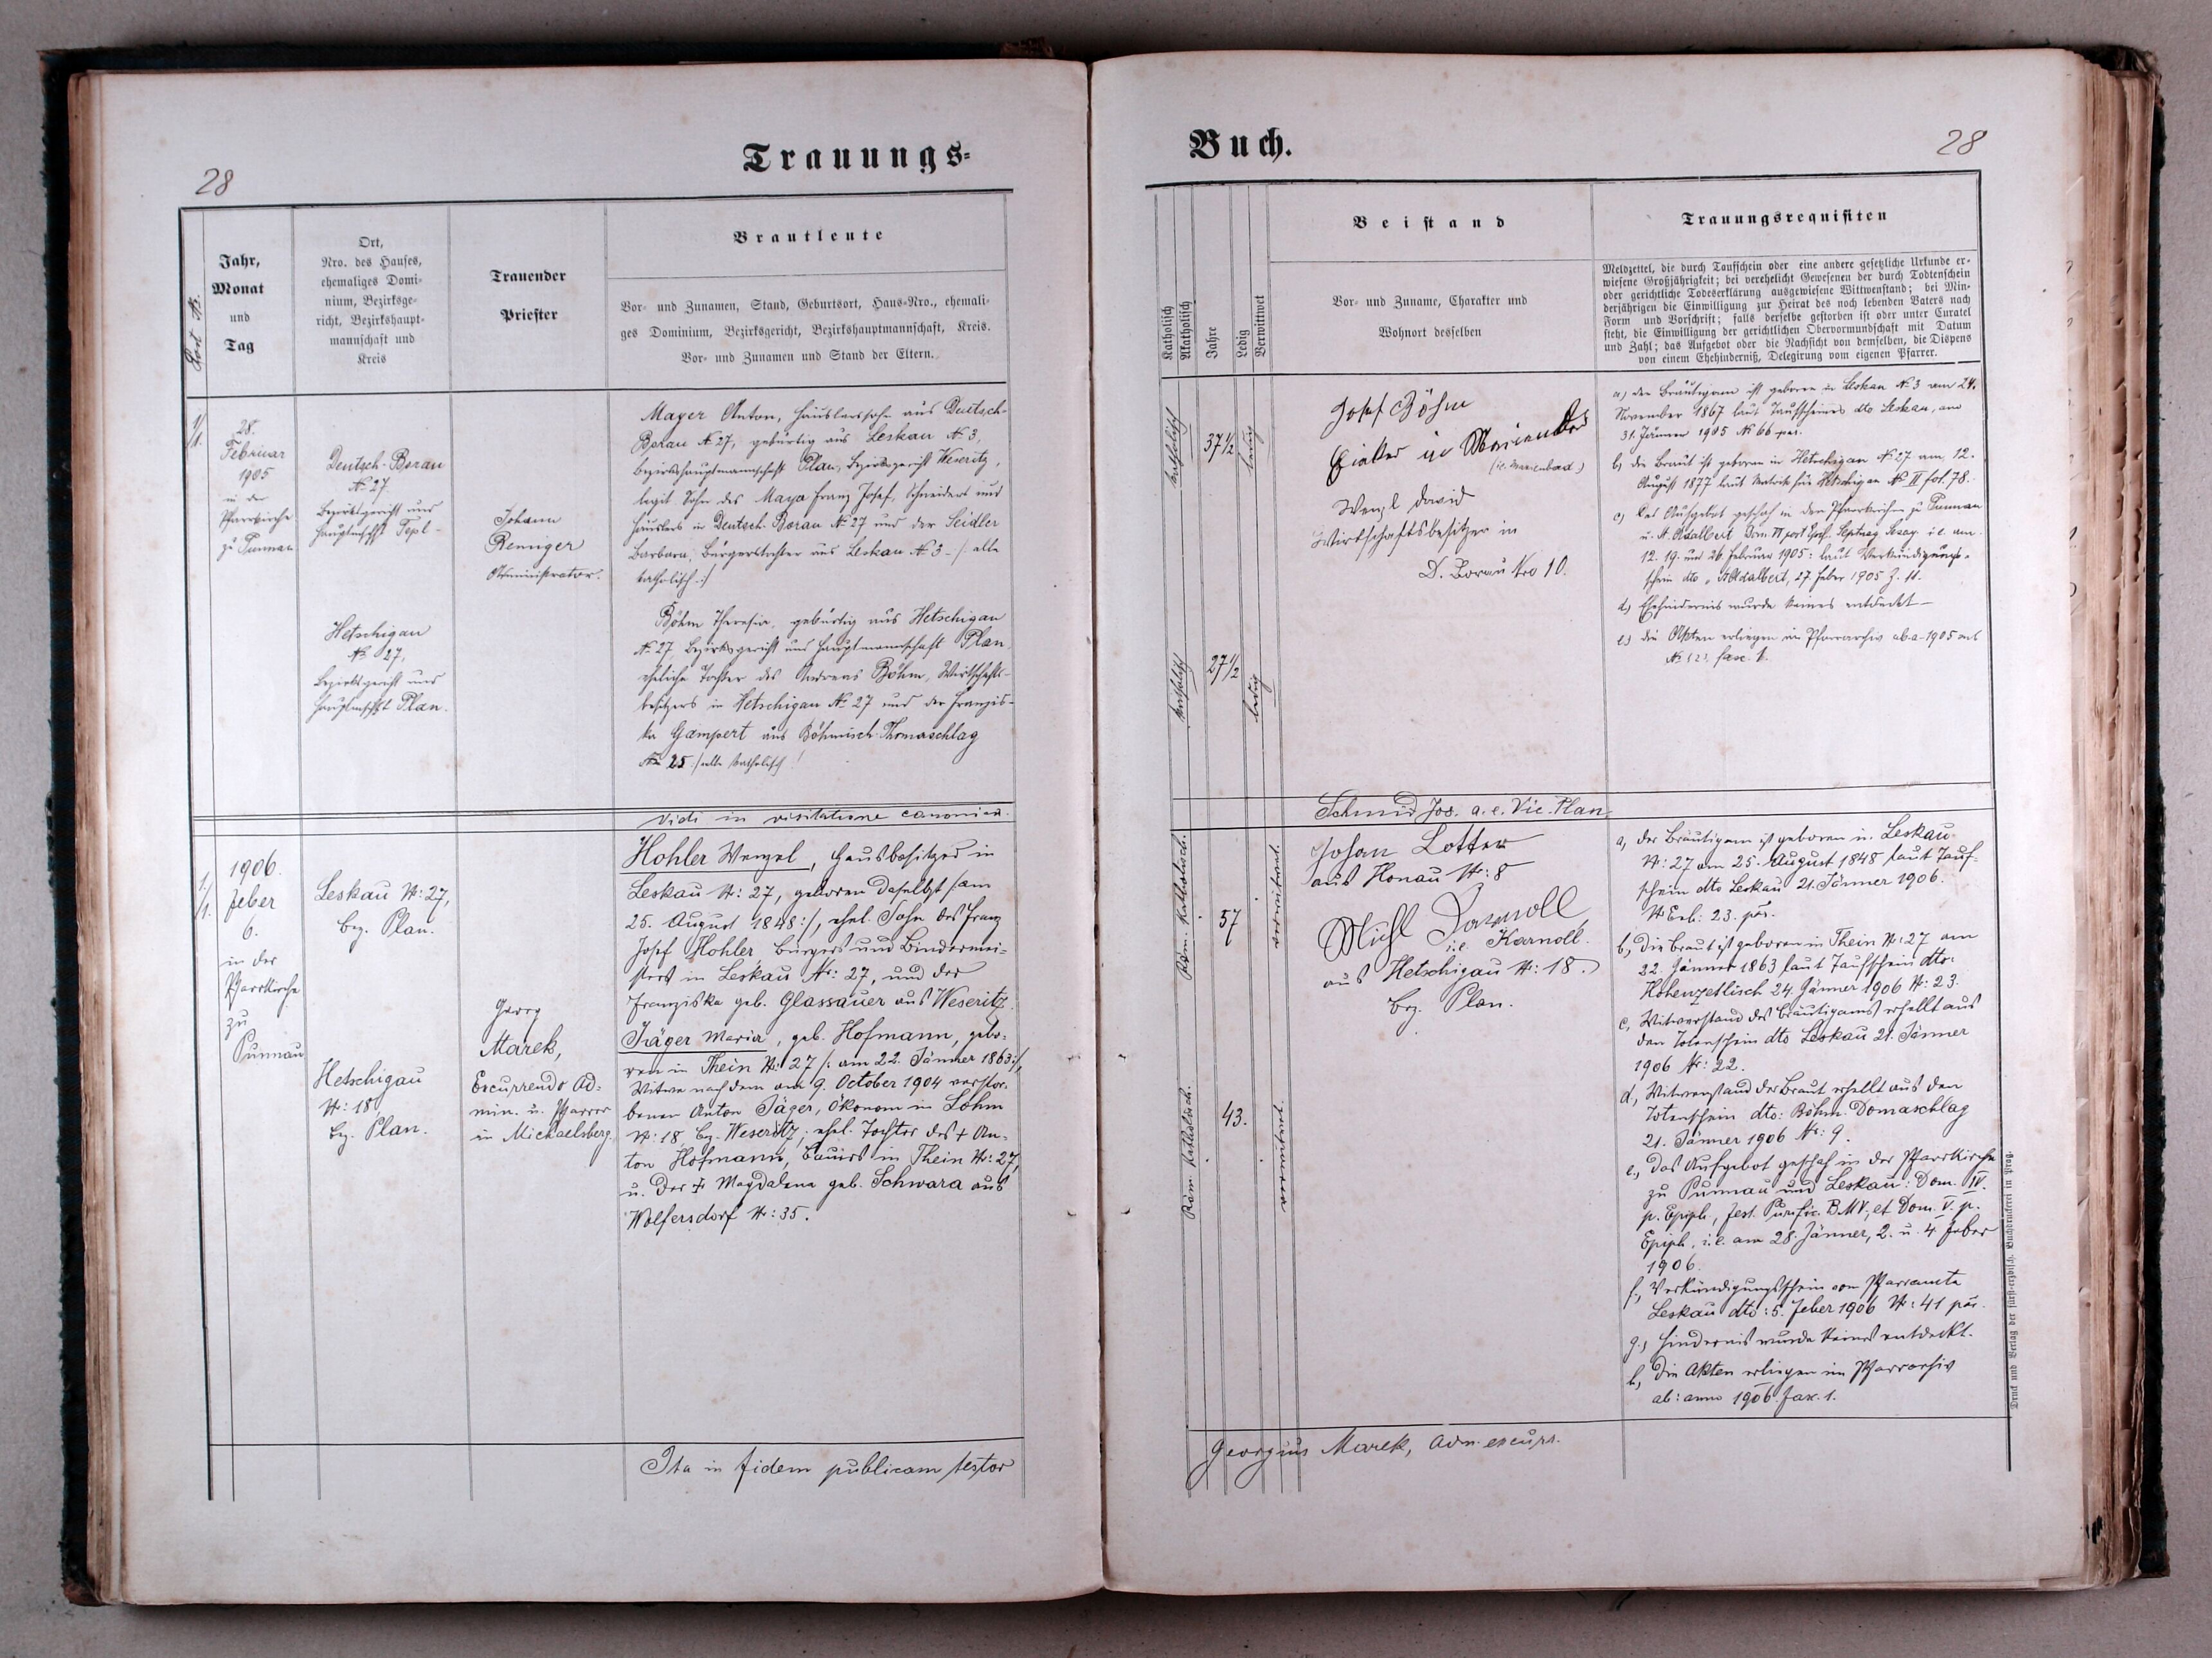 28
Trauungs=
Fort. Nr.
Jahr,
Monat
und
Tag
Ort,
Nro. des Hauses,
ehemaliges Domi-
nium, Bezirksge-
richt, Bezirkshaupt-
mannschaft und
Kreis
Trauender
Priester
Brautleute
Vor- und Zunamen, Stand, Geburtsort, Haus-Nro., ehemali-
ges Dominium, Bezirksgericht, Bezirkshauptmannschaft, Kreis.
Vor- und Zunamen und Stand der Eltern.
1/1.
28.
Februar
1905
in der
Pfarrkirche
zu Punnau
Deutsch-Borau
No 27
Bezirksgericht und
Hauptmschft Tepl-
Hetschigau
No 27,
Bezirksgericht und
Hauptmschft Plan.
Johann
Renniger
Administrator.
Mayer Anton, Häuslerssohn aus Deutsch-
Borau No 27, gebürtig aus Leskau No 3,
Bezirkshauptmannschaft Plan, Bezirksgericht Weseritz,
legit Sohn des Mayer Franz Josef, Schneiders und
Häuslers in Deutsch-Borau No 27 und der Seidler
Barbara, Bürgerstochter aus Leskau No 3 - /: alle
katholisch :/
Böhm Theresia, gebürtig aus Hetschigau
No 27, Bezirksgericht und Hauptmannschaft Plan,
eheliche Tochter des Andreas Böhm, Wirtschafts-
besitzers in Hetschigau No 27 und der Franzis-
ka Gampert aus Böhmisch-Thomaschlag
No 25 :/ alle katholisch !
Vidi in visitatione canonica.
1/1.
1906.
Feber
6.
in der
Pfarrkirche
zu
Punnau
Leskau Nr: 27,
bez. Plan.
Hetschigau
Nr: 18,
bez. Plan.
Georg
Marek,
Excurrendo Ad-
min. u. Pfarrer
in Michaelsberg.
Hohler Wenzel, Hausbesitzer in
Leskau Nr: 27, geboren daselbst /:am
25. August 1848:/, ehel. Sohn des Franz
Josef Hohler, Bürgers und Bindermei-
sters in Leskau Nr: 27, und der
Franziska geb. Glassauer aus Weseritz.
Jäger Maria, geb. Hofmann, gebo-
ren in Thein Nr: 27 /: am 22. Jänner 1863:/,
Witwe nach dem am 9. October 1904 verstor-
benen Anton Jäger, Ökonom in Lohm
Nr: 18, bez. Weseritz; ehel. Tochter des + An-
ton Hofmann, Bauers in Thein Nr: 27,
u. der + Magdalena geb. Schwara aus
Wolfersdorf Nr: 35.
Ita in fidem publicam testor
Buch.
28
Katholisch
Akatholisch
Jahre
Ledig
Verwittwet
Beistand
Vor- und Zuname, Charakter und
Wohnort desselben
Trauungsrequisiten
Meldzettel, die durch Taufschein oder eine andere gesetzliche Urkunde er-
wiesene Großjährigkeit; bei verehelicht Gewesenen der durch Todtenschein
oder gerichtliche Todeserklärung ausgewiesene Wittwenstand; bei Min-
derjährigen die Einwilligung zur Heirat des noch lebenden Vaters nach
Form und Vorschrift; falls derselbe gestorben ist oder unter Curatel
steht, die Einwilligung der gerichtlichen Obervormundschaft mit Datum
und Zahl; das Aufgebot oder die Nachsicht von demselben, die Dispens
von einem Ehehinderniß, Delegirung vom eigenen Pfarrer.
katholisch
37 1/2
ledig
katholisch
27 1/2
ledig
Josef Böhm
Fiaker in
(i.e. Marienbad.)
Wenzl David
Wirtschaftsbesitzer in
D. Borau Nro 10.
a) der Bräutigam ist geboren in Leskau No 3 am 24.
November 1867 laut Taufscheines dto Leskau, am
31. Jänner 1905 No 66 par.
b) die Braut ist geboren in Hetschigau No 27 am 12.
August 1877 laut Matrik für Hetschigau No II fol. 78.
c) Das Aufgebot geschah in den Pfarrkirchen zu Punnau
u. St. Adalbert Dom VI post Epiph. Septuag. Sexag. i.e. am
12. 19. und 26. Februar 1905: laut Verkündigungs-
schein dto St. Adalbert, 27. Feber 1905 Z. 11.
d) Ehehindernis wurde keines entdeckt -
e) die Akten erliegen im Pfarrarchiv ab a - 1905 sub
fasc. 1.
Schmid Jos. a. e. Vic. Plan
Röm. katholisch.
57
verwitwet.
Röm. katholisch.
43.
verwitwet.
Johan Lotter
aus Honau Nr: 8
Michl Karnoll
i.e. Karnoll.
aus Hetschigau Nr: 18.
bez. Plan.
a, der Bräutigam ist geboren in Leskau
Nr: 27 am 25. August 1848 laut Tauf-
schein dto Leskau 21. Jänner 1906.
Nr Exh: 23. par.
b, die Braut ist geboren in Thein Nr: 27 am
22. Jänner 1863 laut Taufschein dto:
Hohenzetlisch 24. Jänner 1906 Nr: 23.
c, Witwerstand des Bräutigams erhellt aus
dem Totenschein dto Leskau 21. Jänner
1906 Nr: 22.
d, Witwenstand der Braut erhellt aus dem
Totenschein dto: Böhm. Domaschlag
21. Jänner 1906 Nr: 9.
e, Das Aufgebot geschah in der Pfarrkirche
zu Punnau und Leskau: Dom. IV.
p. Epiph., fest. Purific. B.M.V., et Dom. V. p.
Epiph. i.e. am 28. Jänner, 2. u. 4 Feber
1906.
f, Verkündigungsschein vom Pfarramte
Leskau dto: 5. Feber 1906 Nr: 41 par.
g, Hindernis wurde keines entdeckt.
h, Die Akten erliegen im Pfarrarchiv
ab: anno 1906. fax. 1.
Georgius Marek, Adm. excurr.
Druck und Verlag der fürst-erzbisch. Buchdruckerei in Prag.